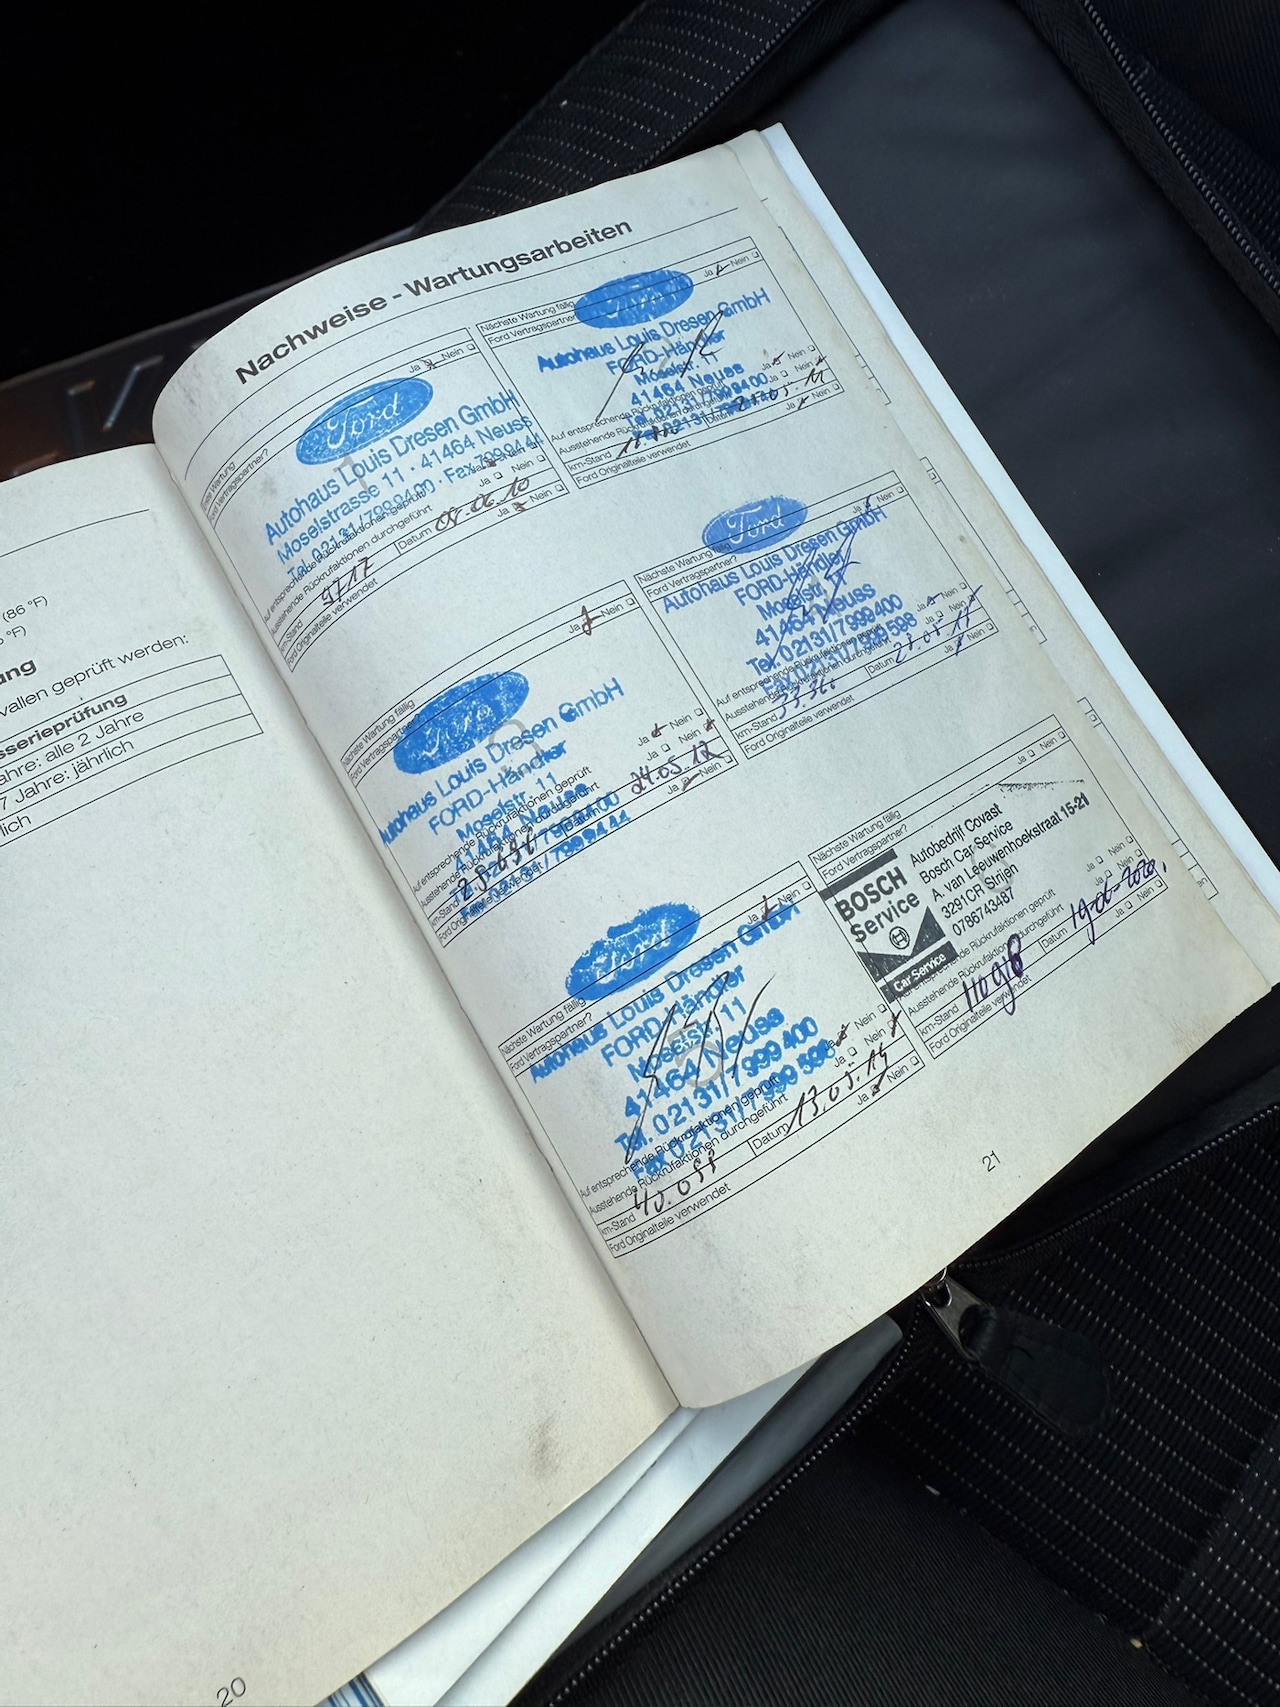 (86 °F)
°F)
ung
vallen geprüft werden:
sserieprüfung
ahre: alle 2 Jahre
7 Jahre: jährlich
lich
20
Nachweise - Wartungsarbeiten
Ja Nein
Ford Vertragspartner?
Ford
Autohaus Louis Dresen GmbH
Moselstrasse 11 · 41464 Neuss
Tel. 02131/7999400 · Fax 7999444
Ausstehende Rückrufaktionen durchgeführt
Ja Nein
Datum 09.06.10
km-Stand 9717
Ford Originalteile verwendet
Ja Nein
Nächste Wartung fällig
Ja Nein
Ford Vertragspartner
Ford
Autohaus Louis Dresen GmbH
FORD-Händler
Moselstr. 11
41464 Neuss
Tel. 02131/7999400
Auf entsprechende Rückrufaktionen geprüft
Ausstehende Rückrufaktionen durchgeführt
Ja Nein
km-Stand
Datum
Ford Originalteile verwendet
Ja
Nächste Wartung fällig
Ja Nein
Ford Vertragspartner
Ford
Autohaus Louis Dresen GmbH
FORD-Händler
Moselstr. 11
41464 Neuss
02131/7999400
02131/7999444
Auf entsprechende Rückrufaktionen geprüft
Ja Nein
Ausstehende Rückrufaktionen durchgeführt
Ja Nein
km-Stand
Datum 24.05.12
Ford Originalteile verwendet
Ja Nein
Nächste Wartung fällig
Ja
Ford Vertragspartner?
Ford
Autohaus Louis Dresen GmbH
FORD-Händler
Moselstr. 11
41464 Neuss
Tel. 02131/7999400
Fax 02131/7999598
Auf entsprechende Rückrufaktionen geprüft
Ja Nein
Ausstehende Rückrufaktionen durchgeführt
km-Stand 33.366
Datum
Ford Originalteile verwendet
Nächste Wartung fällig
Ja Nein
Ford Vertragspartner?
Ford
Autohaus Louis Dresen GmbH
FORD-Händler
Moselstr. 11
41464 Neuss
Tel. 02131/7999400
Fax 02131/7999598
Auf entsprechende Rückrufaktionen geprüft
Ja Nein
Ausstehende Rückrufaktionen durchgeführt
Ja Nein
km-Stand 40.088
Datum 13.05.14
Ford Originalteile verwendet
Ja Nein
Nächste Wartung fällig
Ja Nein
Ford Vertragspartner?
BOSCH
Service
Car Service
Autobedrijf Covast
Bosch Car Service
A. van Leeuwenhoekstraat 15-21
3291CR Strijen
0786743487
Auf entsprechende Rückrufaktionen geprüft
Ja Nein
Ausstehende Rückrufaktionen durchgeführt
Ja Nein
km-Stand 110918
Datum 19-06-2020
Ford Originalteile verwendet
Ja Nein
21